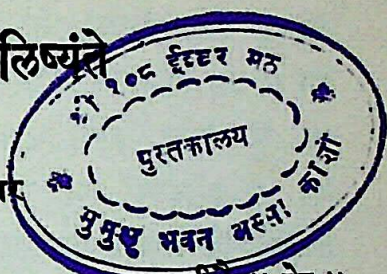 लिष्यंते
श्री १०८ ईश्वर मठ
पुस्तकालय
मुमुक्षु भवन अस्सी काशी